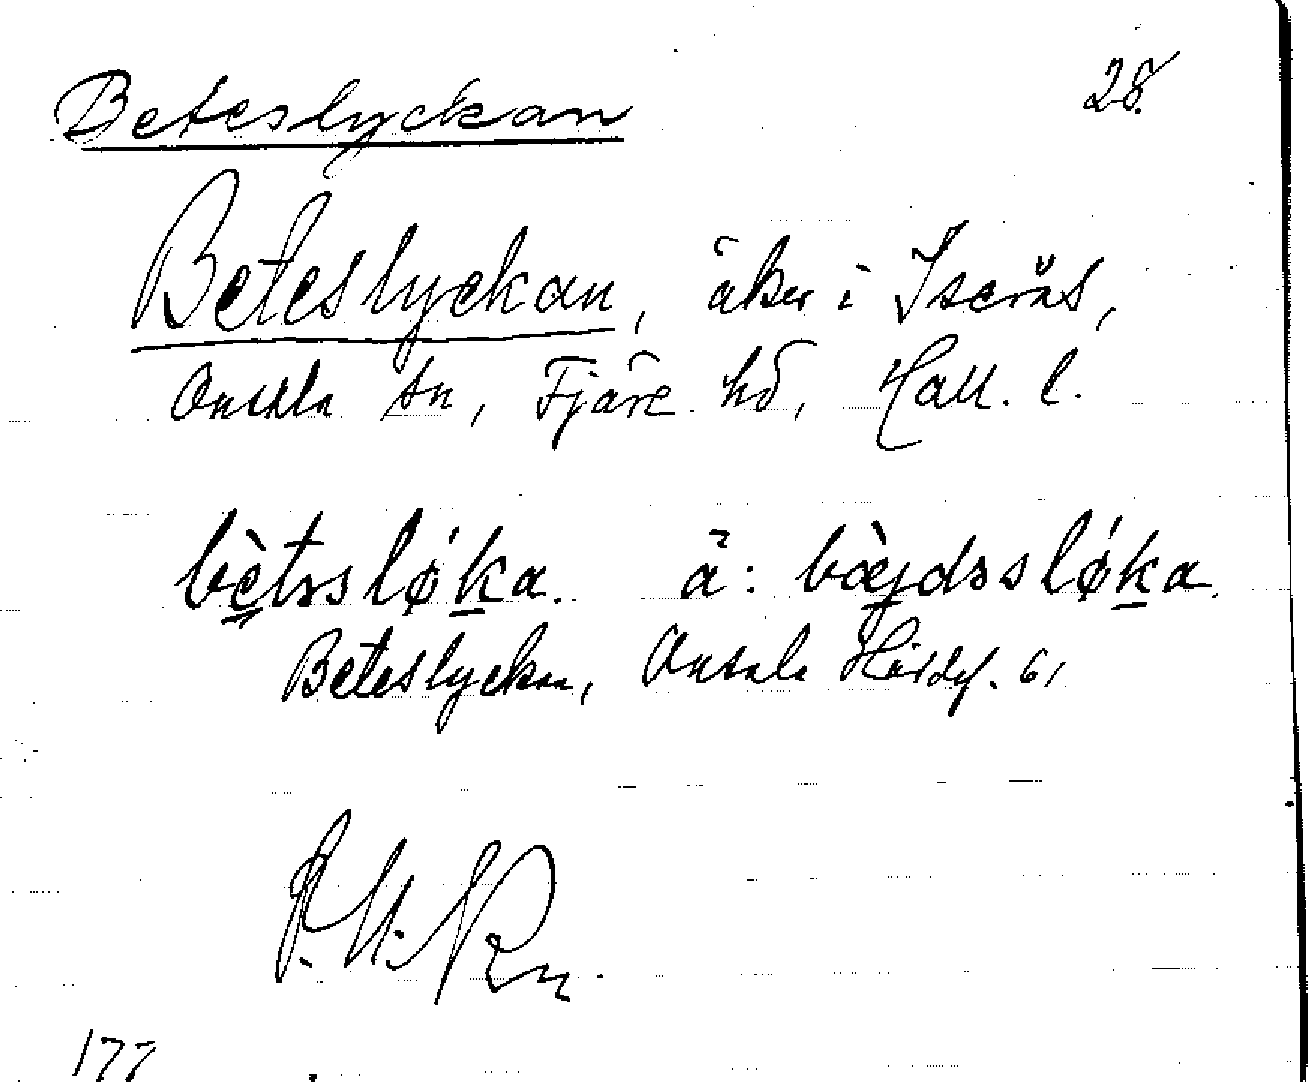 Beteslyckan 28.
Beteslyckan, åker i Iserås,
Onsala sn, Fjäre hd, Hall. l.
bètssløka. ä: bàɟdssløka.
Beteslyckan, Onsala Hürdf. 61
177